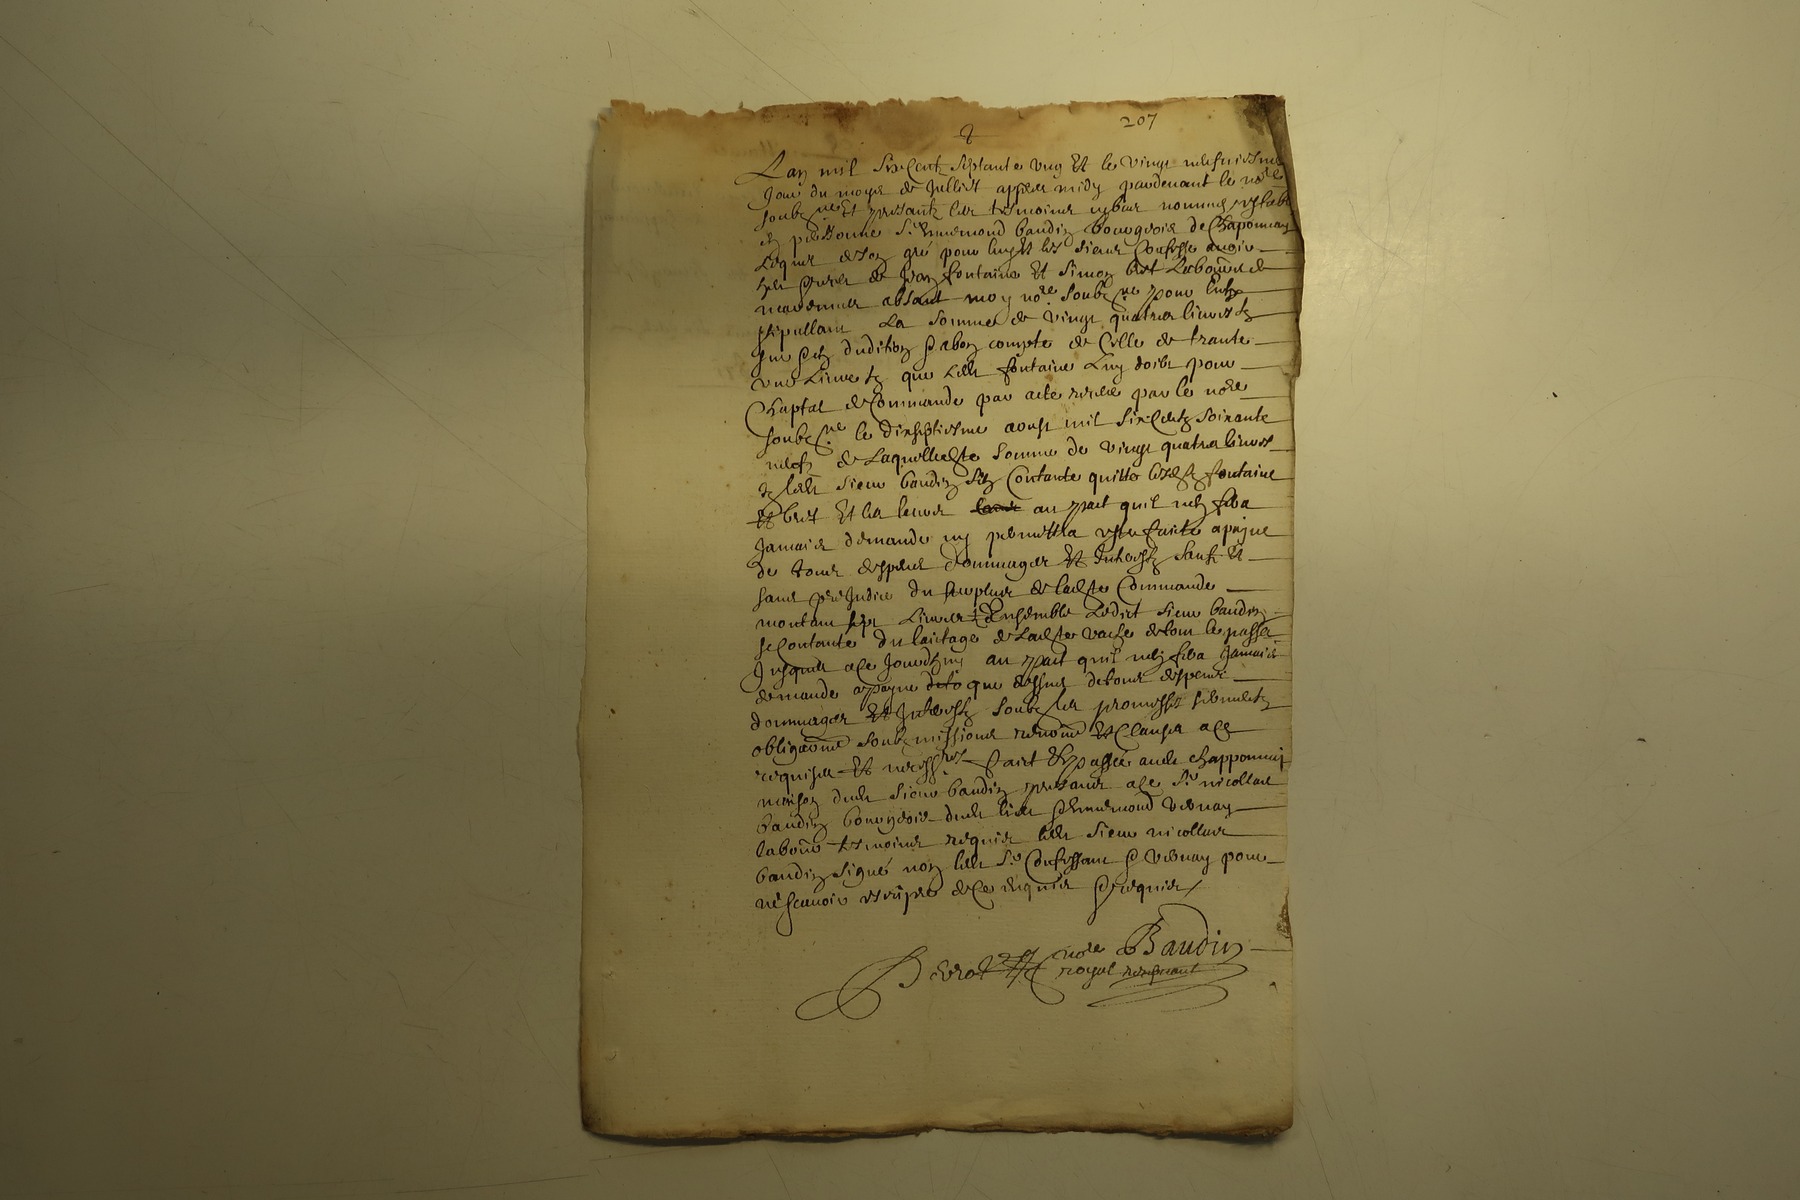 207
Lan mil six centz septante ung Et le vingt neufviesme
Jour du moys de Juillet appres midy pardevant le no.re
soubz.ne Et presantz les tesmoins nommes
personne S.r Ennemond baudin bourgeois de Chaponnay
Lequel de son gré pour luy Et les siens Confesse avoir
de Jean fontaine Et Simon bert Laboureurs de
absant moy no.re soubz.ne pour luy
stipullant La somme de vingt quatre livres tz
compte de Celle de trante
une Livres tz que fontaine Luy doibt pour
Chaptal de Commande par acte receu par le no.re
soubz.ne le dixseptiesme aoust mil six centz soixante
neufz de Laquelle somme de vingt quatre livres
tz led sieur baudin Contante quitte fontaine
Et bert Et les leurs au pact quil nen sera
Jamais demande ny permettra estre faite a peyne
de tous despens dommages Et Interestz sauf Et
sans preJudice du surplus de ladte Commande
montant sept Livres Ensemble Ledict sieur baudin
se Contante du laictage de Ladte vache de tout le passé
Jusques a ce Jourdhuy au pact quil nen sera Jamais
demande a peyne que dessus de tous despens
dommages Et Interestz soubz les promesses sermentz
obligaōns soubzmissions renōns Et Clauses a ce
requises Et necess.res faict Et passé aud chapponnay
maison dud sieur baudin presants a ce S.r nicollas
baudin bourgeois dud lieu Ennemond vernay
labour tesmoins requis led sieur nicollas
baudin signé non led S.r Confessant vernay pour
ne scavoir escripre de Ce enquis requis
no.re Baudin
royal